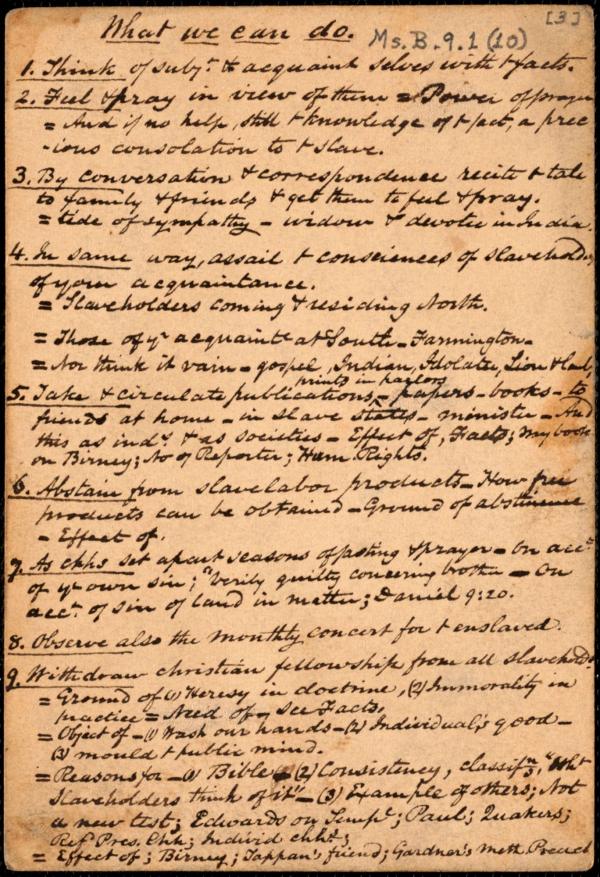 [3]
What we can do. Ms. B. 9. 1 (10)
1. Think of subjt. & acquaint selves with t facts.
2. Feel & pray in view of them = Power of prayer
= And if no help, still t knowledge of t fact, a prec
-ious consolation to t slave.
3. By conversation & correspondence recite t tale
to family & friends & get them to feel & pray.
= tide of sympathy - widow & devotee in India.
4. In same way, assail t consciences of slaveholders
of your acquaintance.
= Slaveholders coming & residing North.
= Those of yr acquaintce at South - Farmington -
= Nor think it vain - gospel, Indian, Idolater, Lion & Lamb,
prints in parlors
5. Take & circulate publications - papers - books - to
friends at home - in slave states - minister - And
this as inds. & as societies - Effect of, Facts; my book
on Birney; No of Reporter; Hum. Rights.
6. Abstain from slavelabor products - How free
products can be obtained - Ground of abstinence
- Effect of.
7. As chhs set apart seasons of fasting & prayer - On acct.
of yr own sin; "Verily guilty concering brother - On
acct. of sin of land in matter; Daniel 9:20.
8. Observe also the monthly concert for t enslaved.
9. Withdraw christian fellowship from all slaveholds
= Ground of (1) Heresy in doctrine, (2) Immorality in
practice = Need of, see Facts.
= Object of - (1) Wash our hands - (2) Individual's good -
(3) mould t public mind.
= Reasons for - (1) Bible - (2) Consistency, classifn, "Wht
slaveholders think of it" - (3) Example of others; Not
a new test; Edwards on ; Paul; Quakers;
Ref. Pres. Chh; Individ chhs;
= Effect of; Birney; Tappan's friend; Gardner's Meth. Preach